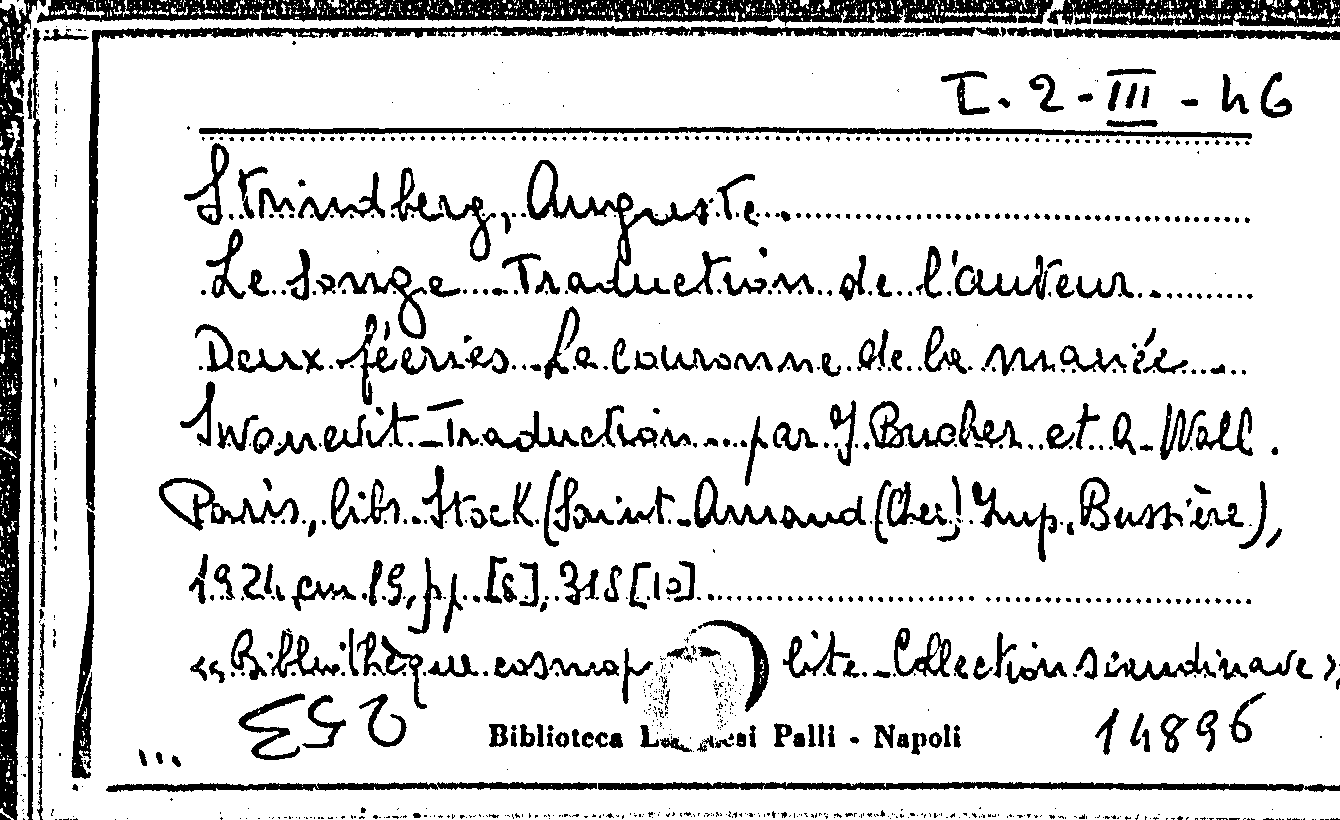 I. 2 - III - 46
Strindberg, Auguste.
Le songe - Traduction de l'auteur.
Deux féeries - La couronne de la mariée -
Swanevit - Traduction par J Bucher et A. Wall.
Paris, libr. Stock (Saint-Amand (Cher) Imp. Bussière),
1924, cm 19, pp. [8], 318 [10]
«Bibliothèque cosmop lite - Collection scandinave»,
253
Biblioteca L esi Palli - Napoli
14896